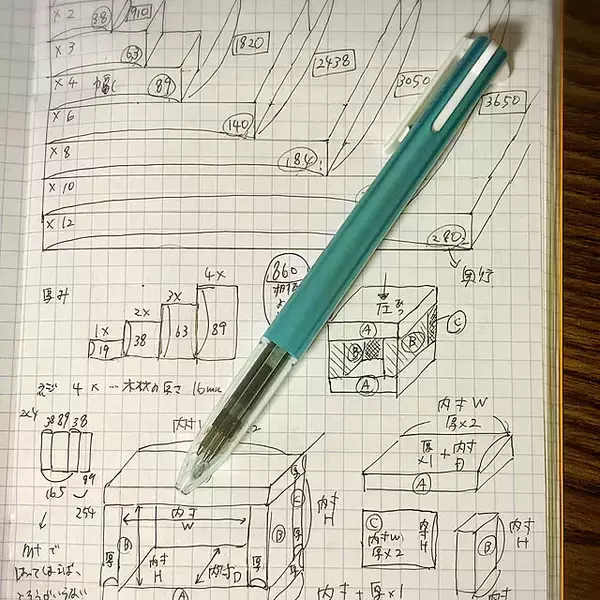 × 2 38 910
× 3 63 1820
× 4 幅 89 2438
× 6 140 3050
× 8 184 3650
× 10
× 12 280
奥行
厚み
1× 2× 3× 4×
19 38 63 89
860
圧
Ⓐ
Ⓑ Ⓑ Ⓒ
Ⓐ
4 × … 木材の厚さ 16mm
2×4
38 89 38
165 89
254
内寸W
内寸W
厚×2
厚×1 + 内寸D
Ⓐ
内寸
W
厚
Ⓑ
内寸H
内寸D
厚
Ⓒ
Ⓑ
内寸H
Ⓐ
Ⓒ
内寸W
厚×2
内寸H
Ⓑ
内寸H
内寸 + 厚×1